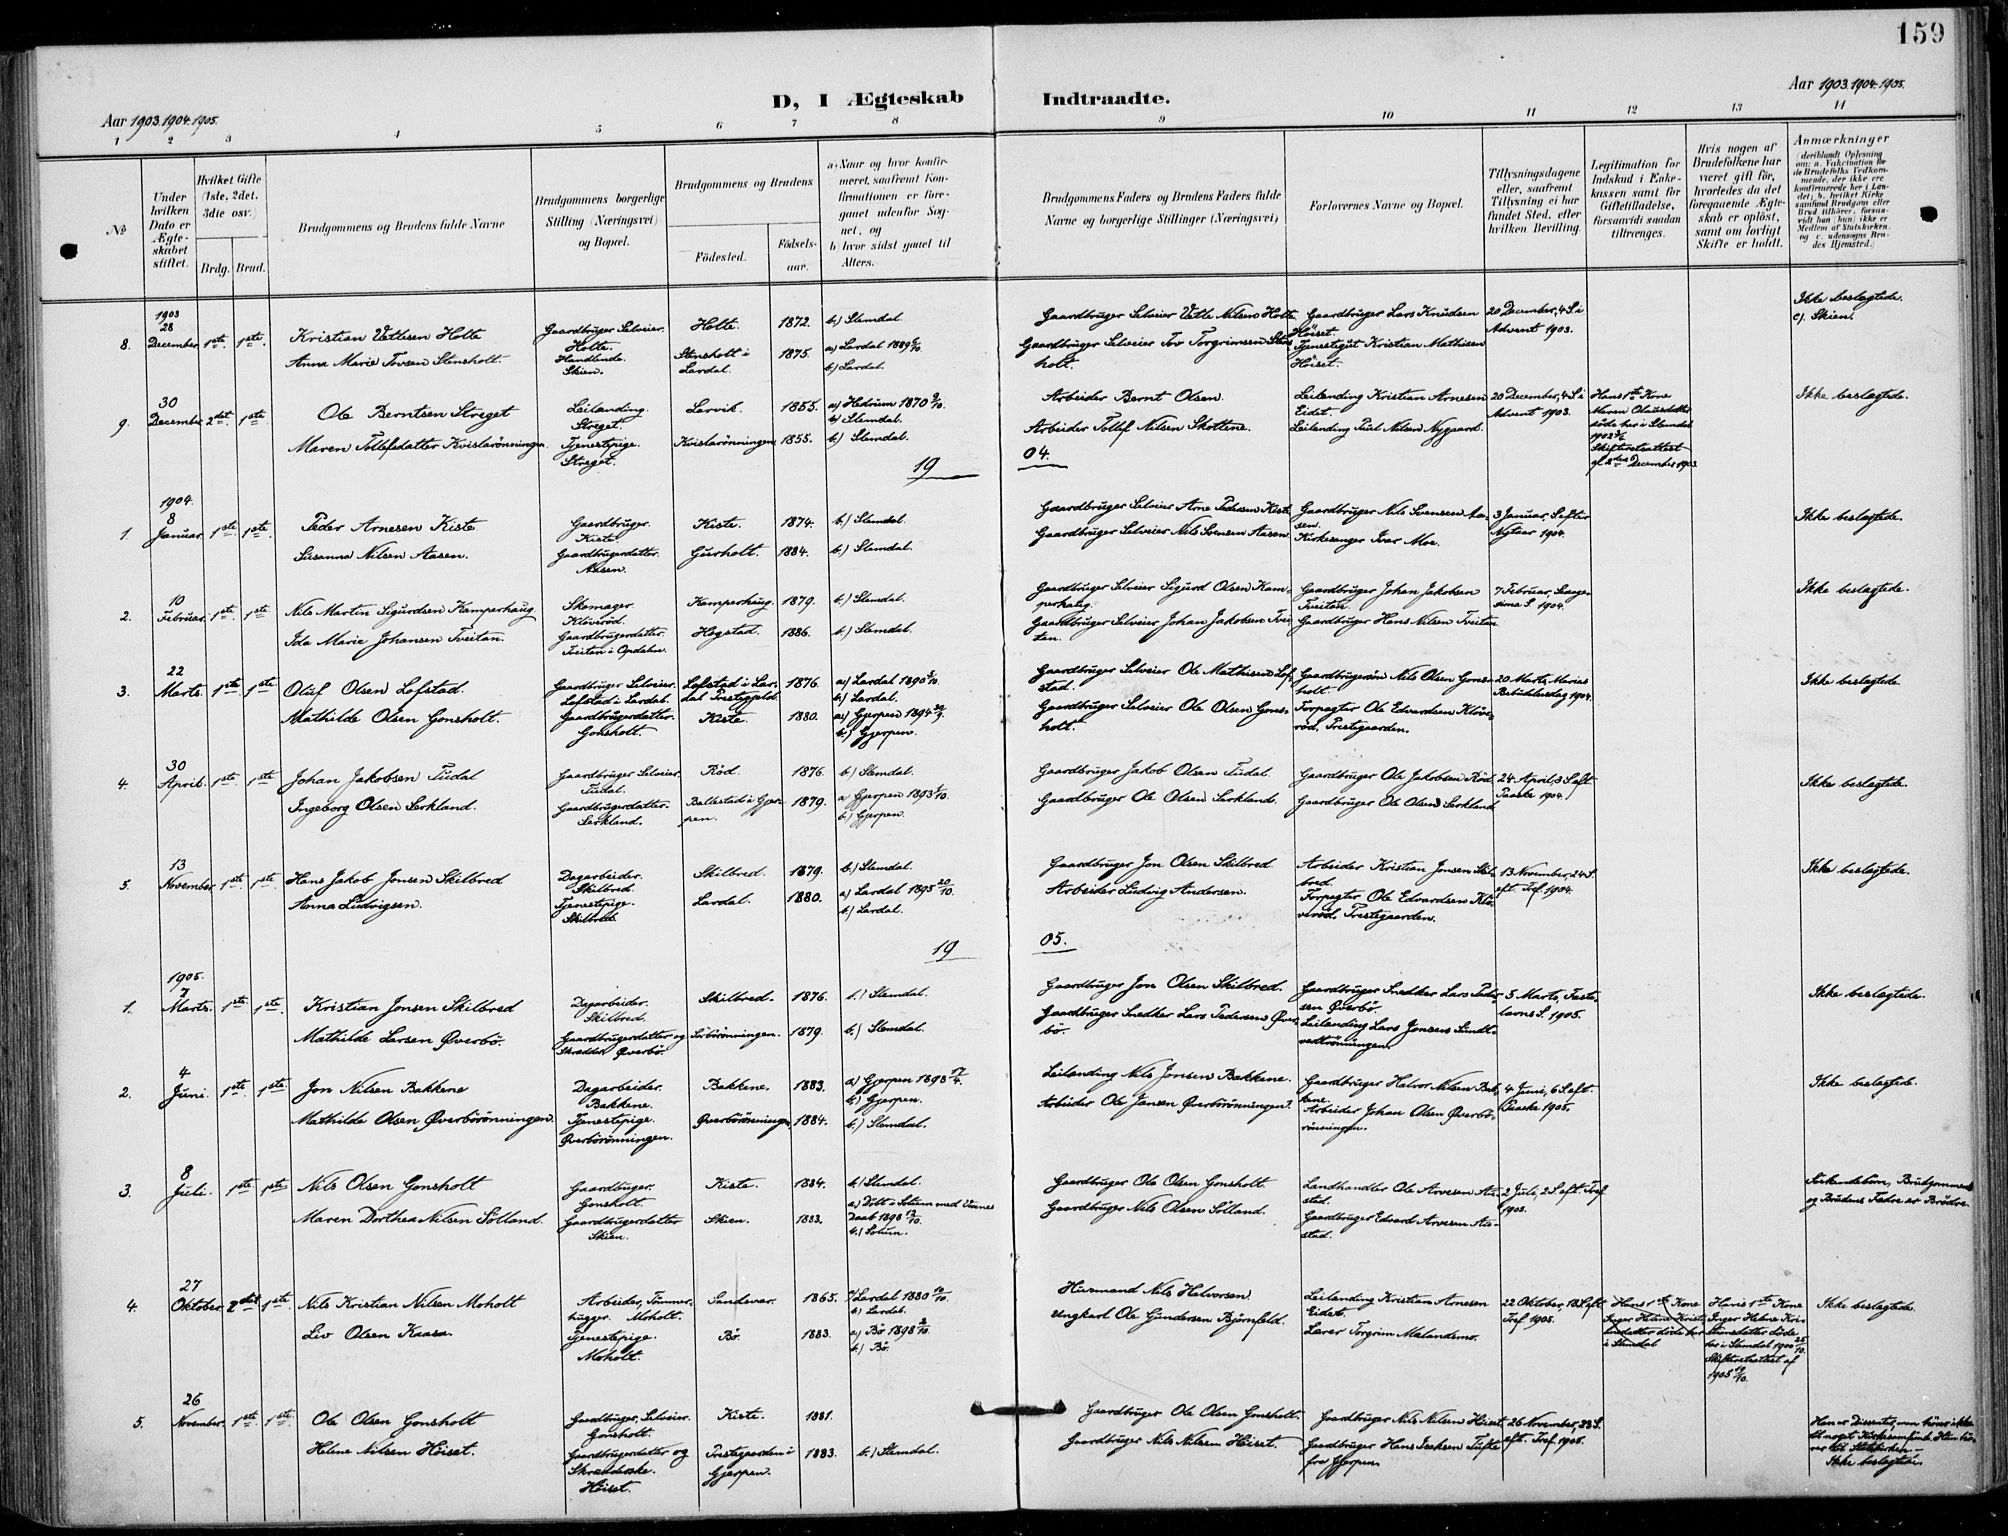 159
D, I Ægteskab Indtraadte.
Aar 1903. 1904. 1905.
Aar 1903. 1904. 1905.
1 2 3 4 5 6 7 8 9 10 11 12 13 14
No
Under hvilken Dato er Ægteskabet stiftet.
Hvilket Gifte (1ste, 2det, 3die osv.)
Brdg. Brud.
Brudgommens og Brudens fulde Navne
Brudgommens borgerlige Stilling (Næringsvei) og Bopæl.
Brudgommens og Brudens
Födested.
Födselsaar.
a. Naar og hvor konfirmeret, saafremt Konfirmationen er foregaaet udenfor Sognet, og
b. hvor sidst gaaet til Alters.
Brudgommens Faders og Brudens Faders fulde Navne og borgerlige Stillinger (Næringsvei)
Forlovernes Navne og Bopæl.
Tillysningsdagene eller, saafremt Tillysning ei har fundet Sted, efter hvilken Bevilling.
Legitimation for Indskud i Enkekassen samt for Giftetilladelse, forsaavidt saadan tiltrænges.
Hvis nogen af Brudefolkene har været gift för, hvorledes da det foregaaende Ægteskab er oplöst, samt om lovligt Skifte er holdt.
Anmærkninger
8. 1903 28 December. 1ste. 1ste. Kristian Vetlesen Holte Gaardbruger Selveier. Holte. Holte. 1872. b) Slemdal. Gaardbruger Selveier Vetle Nilsen Holte. Gaardbruger Lars Knudsen Höiset. 20 December, 4 S. i Advent 1903. Ikke beslægtede. c). Skien.
Anna Marie Tovsen Stensholt. Handlende. Skien. Stensholt i Lardal. 1875. a) Lardal 1889 6/10. b) Lardal. Gaardbruger Selveier Tov Torgrimsen Stensholt. Tjenestegut Kristian Mathisen Höiset.
9. 30 December. 2det. 1ste. Ole Berntsen Streget Leilending. Streget. Larvik. 1855. a) Hedrum 1870 9/10. b) Slemdal. Arbeider Bernt Olsen. Leilending Kristian Arnesen Eidet. 20 December, 4 S. i Advent 1903. Hans 1ste Kone Maren Olausdatter döde her i Slemdal 1902 Skifteretsattest af 2den December 1903 Ikke beslægtede.
Maren Tollefsdatter Kvislerönningen. Tjenestepige. Streget. Kvislerönningen. 1855. b) Slemdal. Arbeider Tollef Nilsen Skottene. Leilending Paul Nilsen Nygaard.
19 04.
1. 1904. 8 Januar. 1ste. 1ste. Peder Arnesen Kiste Gaardbruger. Kiste. Kiste. 1874. b) Slemdal. Gaardbruger Selveier Arne Pedersen Kiste. Gaardbruger Nils Svensen Aasen. 3 Januar, S. efter Nytaar 1904. Ikke beslægtede.
Susanna Nilsen Aasen. Gaardbrugerdatter. Aasen. Gurholt. 1884. b) Slemdal. Gaardbruger Selveier Nils Svensen Aasen. Kirkesanger Ivar Moe.
2. 10 Februar. 1ste. 1ste. Nils Martin Sigurdsen Kamperhaug Skomager. Klöveröd. Kamperhaug. 1879. b) Slemdal. Gaardbruger Selveier Sigurd Olsen Kamperhaug. Gaardbruger Johan Jakobsen Tveitan. 7 Februar, Sexagesima S. 1904. Ikke beslægtede.
Ida Marie Johansen Tveitan. Gaardbrugerdatter. Tveitan i Opdalen. Hogstad. 1886. b) Slemdal. Gaardbruger Selveier Johan Jakobsen Tveitan. Gaardbruger Hans Nilsen Tveitan
3. 22 Marts. 1ste. 1ste. Oluf Olsen Lofstad. Gaardbruger Selveier. Lofstad i Lardal. Lofstad i Lardal Prestegjeld. 1876. a) Lardal 1890 5/10. b) Lardal. Gaardbruger Selveier Ole Mathisen Lofstad. Gaardbrugersön Nils Olsen Gonsholt. 20 Marts, Marias Bebudelsesdag 1904. Ikke beslægtede.
Mathilde Olsen Gonsholt. Gaardbrugerdatter. Gonsholt. Kiste. 1880. a) Gjerpen 1894 30/9. b) Gjerpen. Gaardbruger Selveier Ole Olsen Gonsholt. Forpagter Ole Edvardsen Klöveröd, Prestegaarden.
4. 30 April. 1ste. 1ste. Johan Jakobsen Tudal Gaardbruger Selveier. Tudal. Röd. 1876. b) Slemdal. Gaardbruger Jakob Olsen Tudal. Gaardbruger Ole Jakobsen Röd. 24 April, 3 S. eft. Paaske 1904. Ikke beslægtede.
Ingeborg Olsen Serkland. Gaardbrugerdatter. Serkland. Ballestad i Gjerpen. 1879. a) Gjerpen 1893 1/10. b) Gjerpen. Gaardbruger Ole Olsen Serkland. Gaardbruger Ole Olsen Serkland
5. 13 November. 1ste. 1ste. Hans Jakob Jonsen Skilbred Dagarbeider. Skilbred. Skilbred. 1879. b) Slemdal. Gaardbruger Jon Olsen Skilbred. Arbeider Kristian Jonsen Skilbred. 13 November, 24 S. eft. Tref. 1904. Ikke beslægtede.
Anna Ludvigsen. Tjenestepige. Skilbred. Lardal. 1880. a) Lardal 1895 20/10. b) Lardal. Arbeider Ludvig Andersen. Forpagter Ole Edvardsen Klöveröd, Prestegaarden.
19 05.
1. 1905. 7 Marts. 1ste. 1ste. Kristian Jonsen Skilbred Dagarbeider. Skilbred. Skilbred. 1876. b) Slemdal. Gaardbruger Jon Olsen Skilbred. Gaardbruger Snedker Lars Pedersen Øverbö. 5 Marts, Fastelavns S. 1905. Ikke beslægtede.
Mathilde Larsen Øverbö. Gaardbrugerdatter og Skrædder. Øverbö. Sörbörönningen. 1879. b) Slemdal. Gaardbruger Snedker Lars Pedersen Øverbö. Leilending Lars Jonsen
2. 4 Juni. 1ste. 1ste. Jon Nilsen Bakkene Dagarbeider. Bakkene. Bakkene. 1883. a) Gjerpen 1898 17/4. b) Gjerpen. Leilending Nils Jonsen Bakkene. Gaardbruger Halvor Nilsen Bakkene. 4 Juni, 6 S. eft. Paaske 1905. Ikke beslægtede.
Mathilde Olsen Øverbörönningen. Tjenestepige. Øverbörönningen. Øverbörönningen. 1884. b) Slemdal. Arbeider Ole Jansen Øverbörönningen. Arbeider Johan Olsen Øverbörönningen.
3. 8 Juli. 1ste. 1ste. Nils Olsen Gonsholt Gaardbruger. Gonsholt. Kiste. 1884. b) Slemdal. Gaardbruger Ole Olsen Gonsholt. Landhandler Ole Arvesen Austad. 2 Juli, 2 S. eft. Tref. 1905. Söskendebörn, Brudgommens og Brudens Fædre er Brödre.
Maren Dorthea Nilsen Sölland. Gaardbrugerdatter Skien. Skien. 1883. a) Döbt i Solum med Daab 1898 12/10. b) Solum. Gaardbruger Nils Olsen Sölland. Gaardbruger Edvard Arvesen Austad.
4. 27 Oktober. 2det 1ste. Nils Kristian Nilsen Moholt Arbeider, Tömmerhugger. Moholt. Sandsvær. 1865. a) Lardal 1880 10/10. b) Lardal. Husmand Nils Halvorsen. Leilending Kristian Arnesen Eidet. 22 Oktober, 18 S. eft. Tref. 1905. Hans 1ste Kone Inger Helene Kristiansdatter döde her i Slemdal Hans 1ste Kone Inger Helene Kristiansdatter döde her i Slemdal 1900 25/10. Skifteretsattest af 1905 19/10. Ikke beslægtede.
Liv Olsen Kaasa. Tjenestepige. Moholt. Bö. 1883. a) Bö 1898 2/10. b) Bö. Ungkarl Ole Gundersen Björnfeld. Lærer Torgrim
5. 26 November. 1ste. 1ste. Ole Olsen Gonsholt Gaardbruger, Selveier. Gonsholt. Kiste. 1881. Gaardbruger Ole Olsen Gonsholt. Gaardbruger Nils Nilsen Höiset. 26 November, 23 S. eft. Tref. 1905. Han er Dissenter, men hörer ikke til noget Kirkesamfund. Hun hörer til Statskirken. — Ikke beslægtede.
Helene Nilsen Höiset. Gaardbrugerdatter og Skrædderske. Höiset. Prestegaarden i Gjerpen. 1883. b) Slemdal. Gaardbruger Nils Nilsen Höiset. Gaardbruger Hans Isaksen Tufte fra Gjerpen.